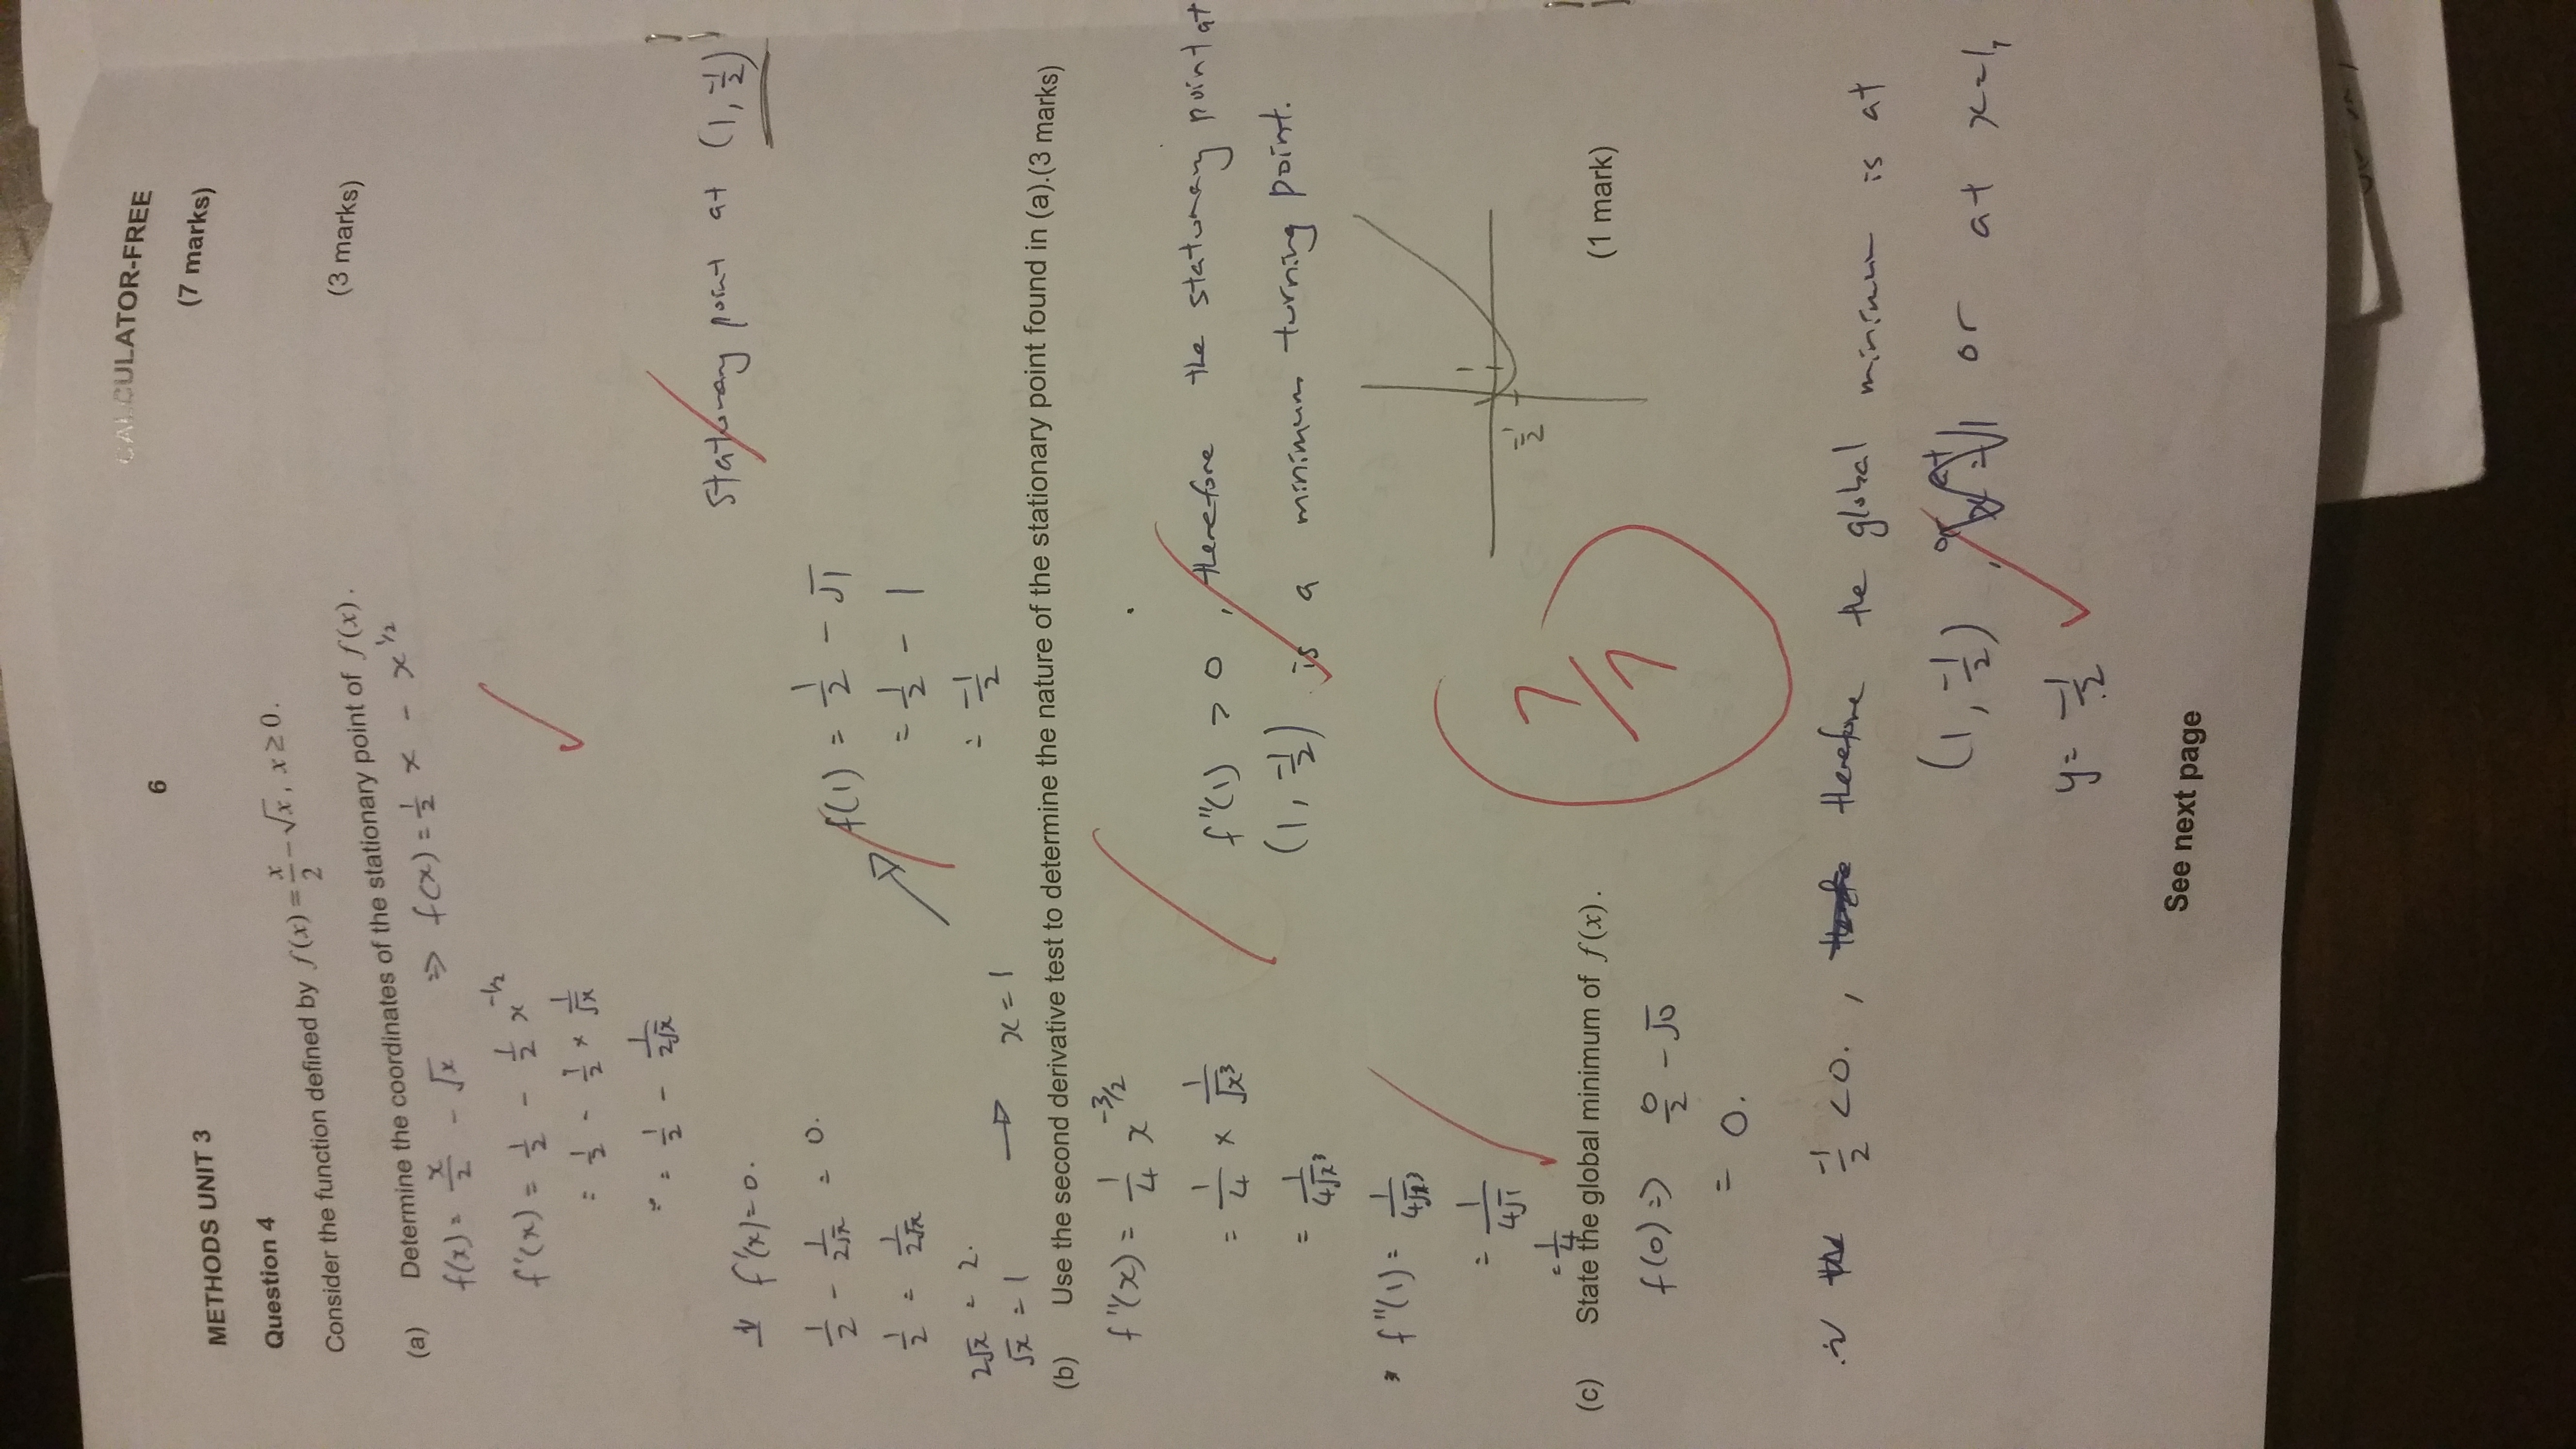 CALCULATOR-FREE
6
METHODS UNIT 3
(7 marks)
Question 4
Consider the function defined by f(x) = x/2 − √x, x ≥ 0.
(a) Determine the coordinates of the stationary point of f(x). (3 marks)
f(x) = x/2 - √x ⇒ f(x) = 1/2 x - x^1/2
f'(x) = 1/2 - 1/2 x^-1/2
= 1/2 - 1/2 × 1/√x
= 1/2 - 1/2√x
stationary point at (1, -1/2)
f'(x) = 0.
1/2 - 1/2√x = 0.
1/2 = 1/2√x
2√x = 2.
√x = 1 → x = 1
f(1) = 1/2 - √1
= 1/2 - 1
= -1/2
(b) Use the second derivative test to determine the nature of the stationary point found in (a).(3 marks)
f"(x) = 1/4 x^-3/2
= 1/4 × 1/√x³
= 1/4√x³
f"(1) = 1/4√1³
= 1/4√1
= 1/4
f"(1) > 0, therefore the stationary point at
(1, -1/2) is a minimum turning point.
1
-1/2
7/7
(c) State the global minimum of f(x). (1 mark)
f(0) ⇒ 0/2 - √0
= 0.
-1/2 < 0. , therefore the global minimum is at
(1, -1/2), or at x=1,
y = -1/2
See next page